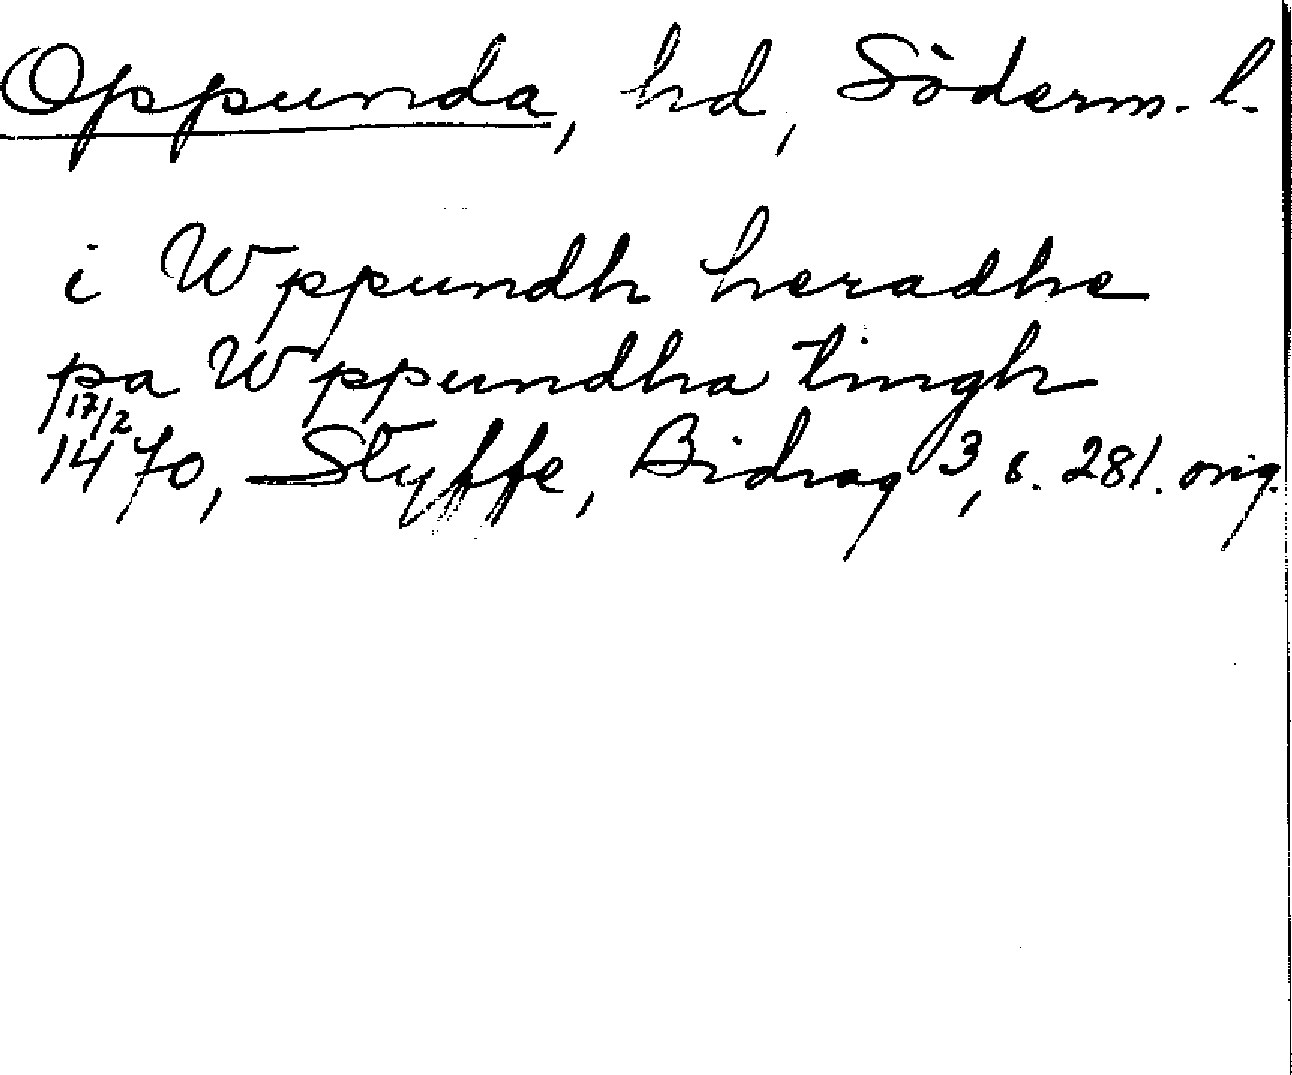 Oppunda, hd, Söderm. l.
i Wppundh heradhe
pa Wppundha tingh
17/2
1470, Styffe, Bidrag 3, s. 281. orig.